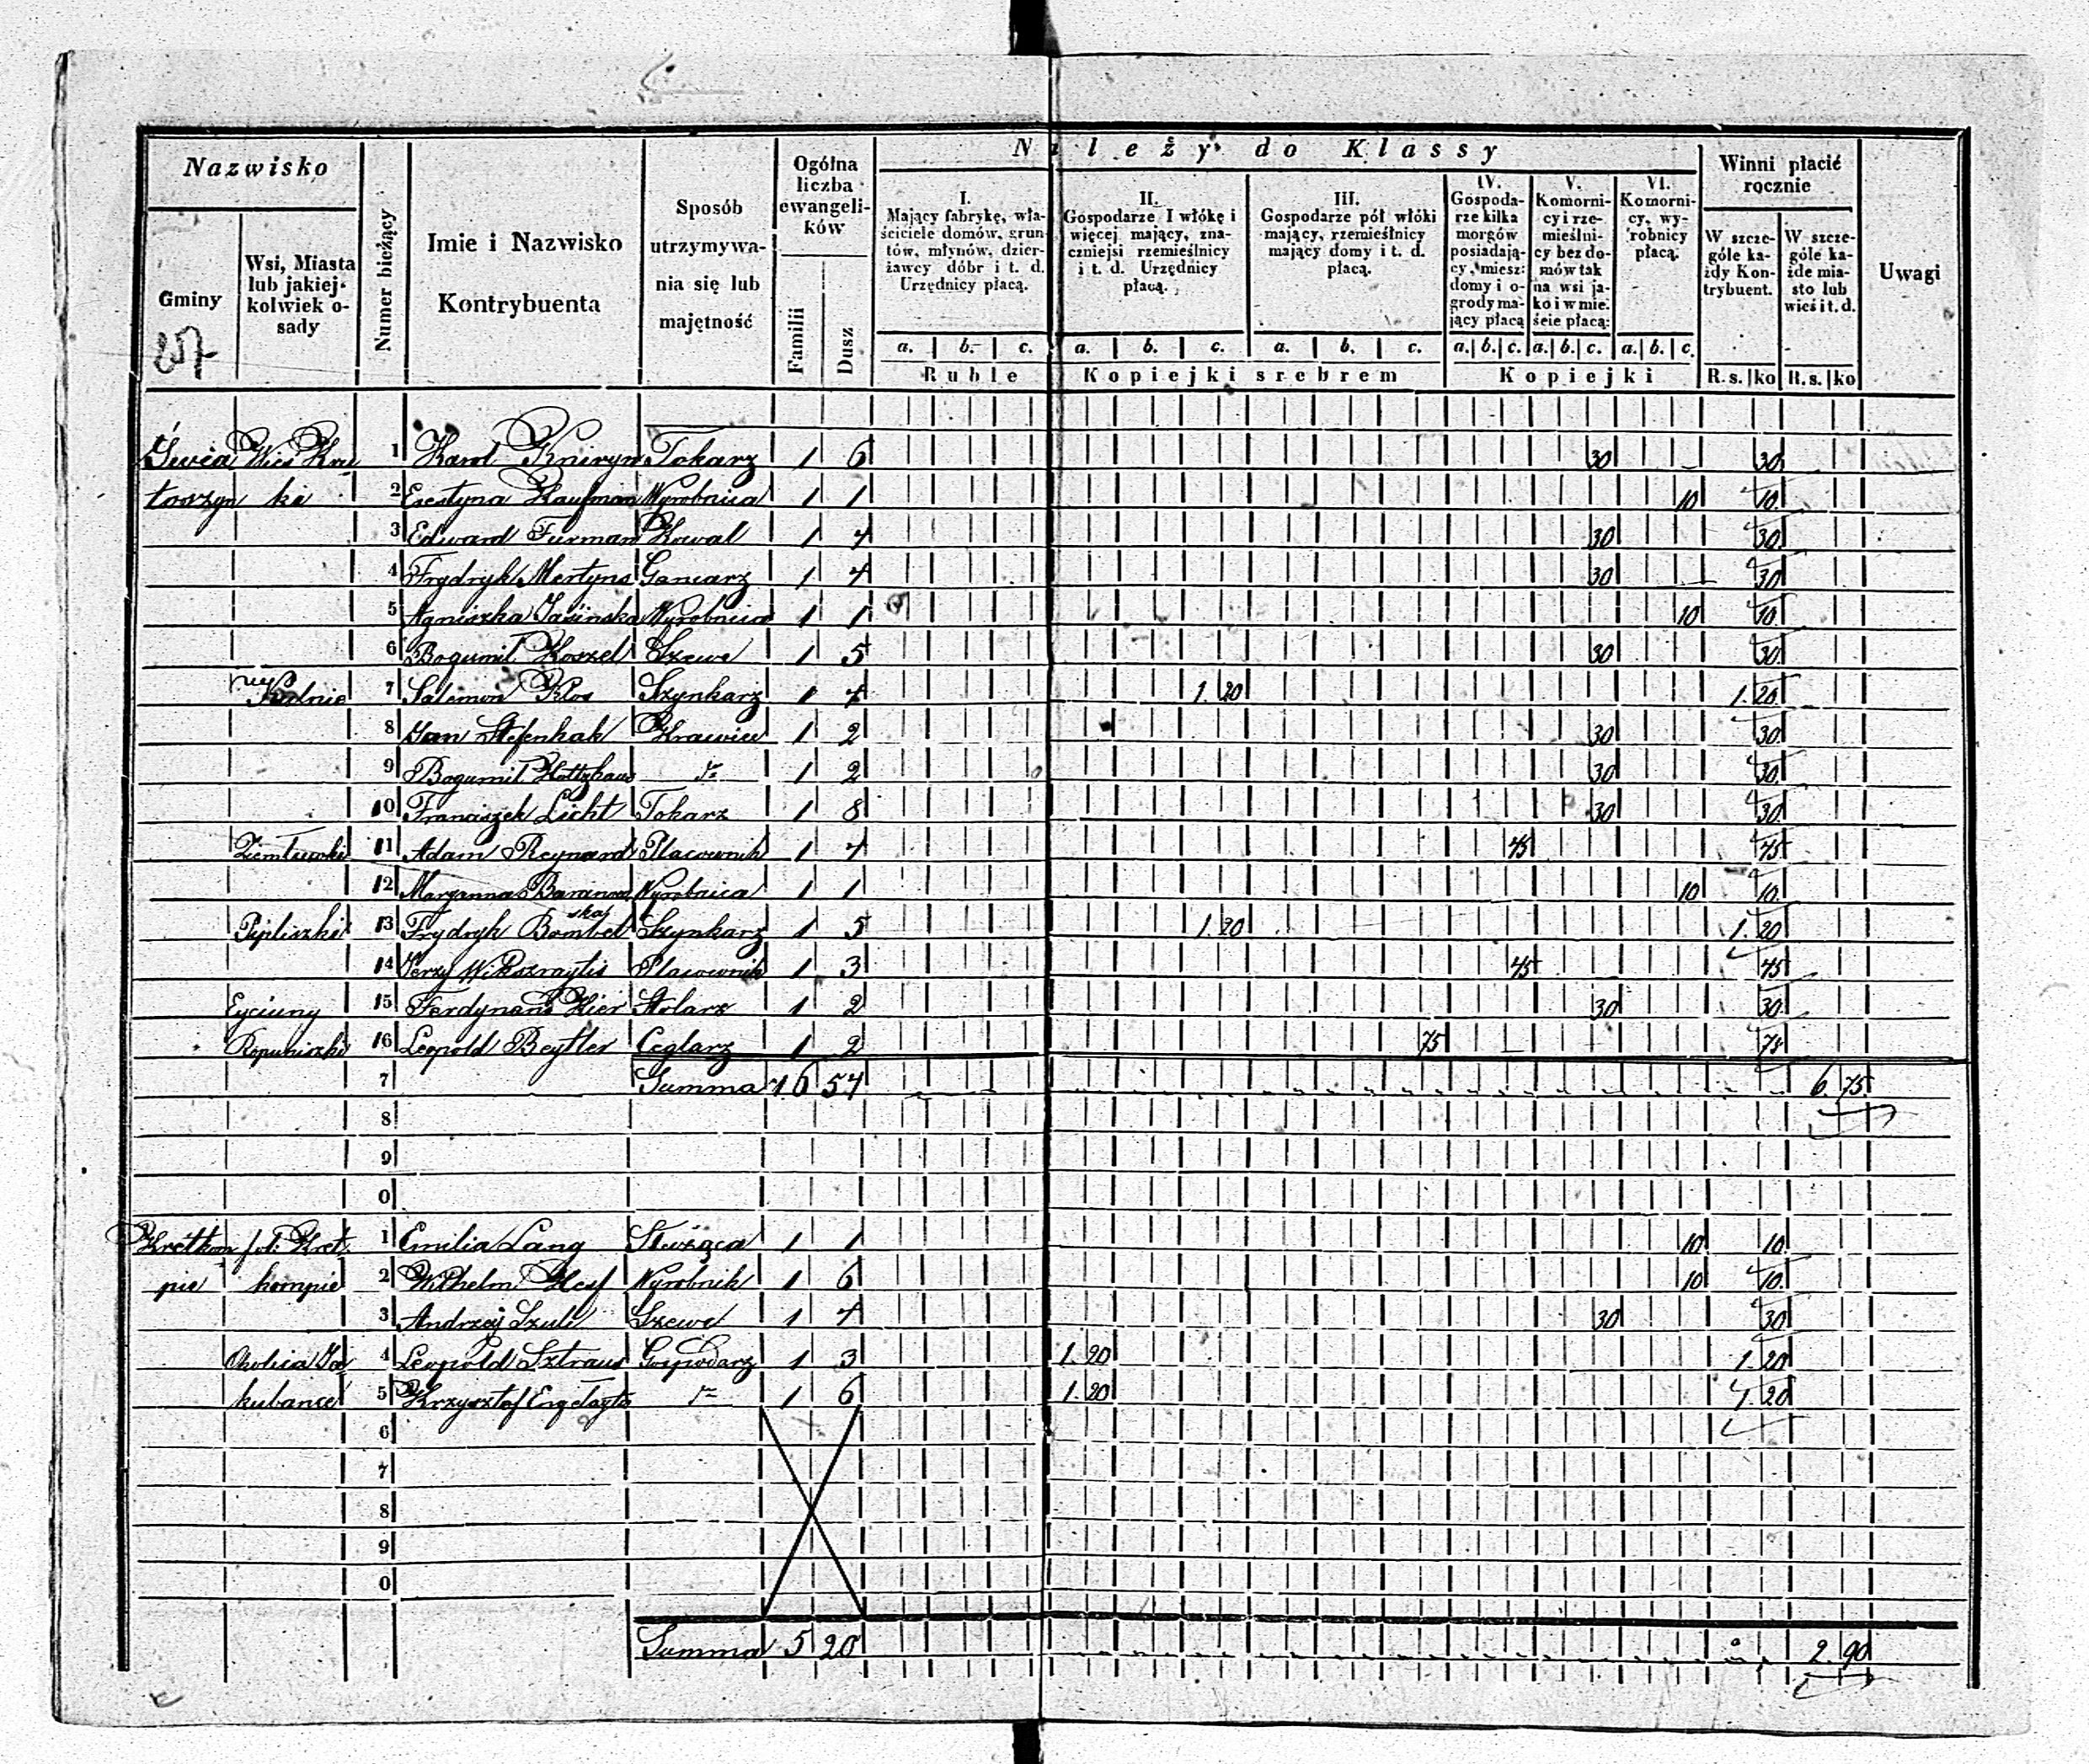 Nazwisko
Gminy
Wsi, Miasta lub jakiej-kolwiek o-sady
Numer bieżący
Imie i Nazwisko Kontrybuenta
Sposób utrzymywa-nia się lub majętność
Ogólna liczba ewangeli-ków
Familii
Dusz
Należy do Klassy
I. Mający fabrykę, wła-ściciele domów, grun-tów, młynów, dzier-żawcy dóbr i t. d. Urzędnicy płacą.
II. Gospodarze 1 włókę i więcej mający, zna-czniejsi rzemieślnicy i t. d. Urzędnicy płacą.
III. Gospodarze pół włóki mający, rzemieślnicy mający domy i t. d. płacą.
IV. Gospoda-rze kilka morgów posiadają-cy, miesz: domy i o-grody ma-jący płacą
V. Komorni-cy i rze-mieślni-cy bez do-mów tak na wsi ja-ko i w mie-ście płacą:
VI. Komorni-cy, wy-robnicy płacą.
Winni płacić rocznie
W szcze-góle ka-żdy Kon-trybuent.
W szcze-góle ka-żde mia-sto lub wieś i t. d.
Uwagi
a. b. c. a. b. c. a. b. c. a. b. c. a. b. c. a. b. c.
Ruble Kopiejki srebrem Kopiejki R.s. ko R.s. ko
257
Wieś 1 Karol Kniryn Tokarz 1 6 30 30
toszyn ki 2 Kaufman Wyrobnica 1 1 10 10
3 Edward Furman Kowal 1 4 30 30
4 Frydryk Mertyns Garncarz 1 4 30 30
5 Agniszka Jasińska Wyrobnica 1 1 10 10
6 Bogumil Koszel Szewc 1 5 30 30
Rudnie 7 Salomon Klos Szynkarz 1 4 1. 20 1. 20
8 Jan Stefenhak Krawiec 1 2 30 30
9 Bogumil Holtzhaus 1 2 30 30
10 Franciszek Licht Tokarz 1 8 30 30
11 Adam Reynard Placownik 1 4 45 45
12 Maryanna Baranowska Wyrobnica 1 1 10 10
Pipliszki 13 Frydryk Bombel Szynkarz 1 5 1. 20 1. 20
14 Jerzy Wikszraytis Placownik 1 3 45 45
Eyciuny 15 Ferdynand Kier Stolarz 1 2 30 30
Ropuniszki 16 Leopold Beytler Ceglarz 1 2 75 75
7 Summa 16 54 6. 75
8
9
0
Kretkom fol: Kret. 1 Emilia Lang Służąca 1 1 10 10
pie kompie 2 Wilhelm Wyrobnik 1 6 10 10
3 Andrzej Szulc Szewc 1 4 30 30
Okolica Ja 4 Leopold Sztraus Gospodarz 1 3 1. 20 1. 20
kubance 5 Krzysztof Engelayts 1 6 1. 20 1. 20
6
7
8
9
0
Summa 5 20 2. 90